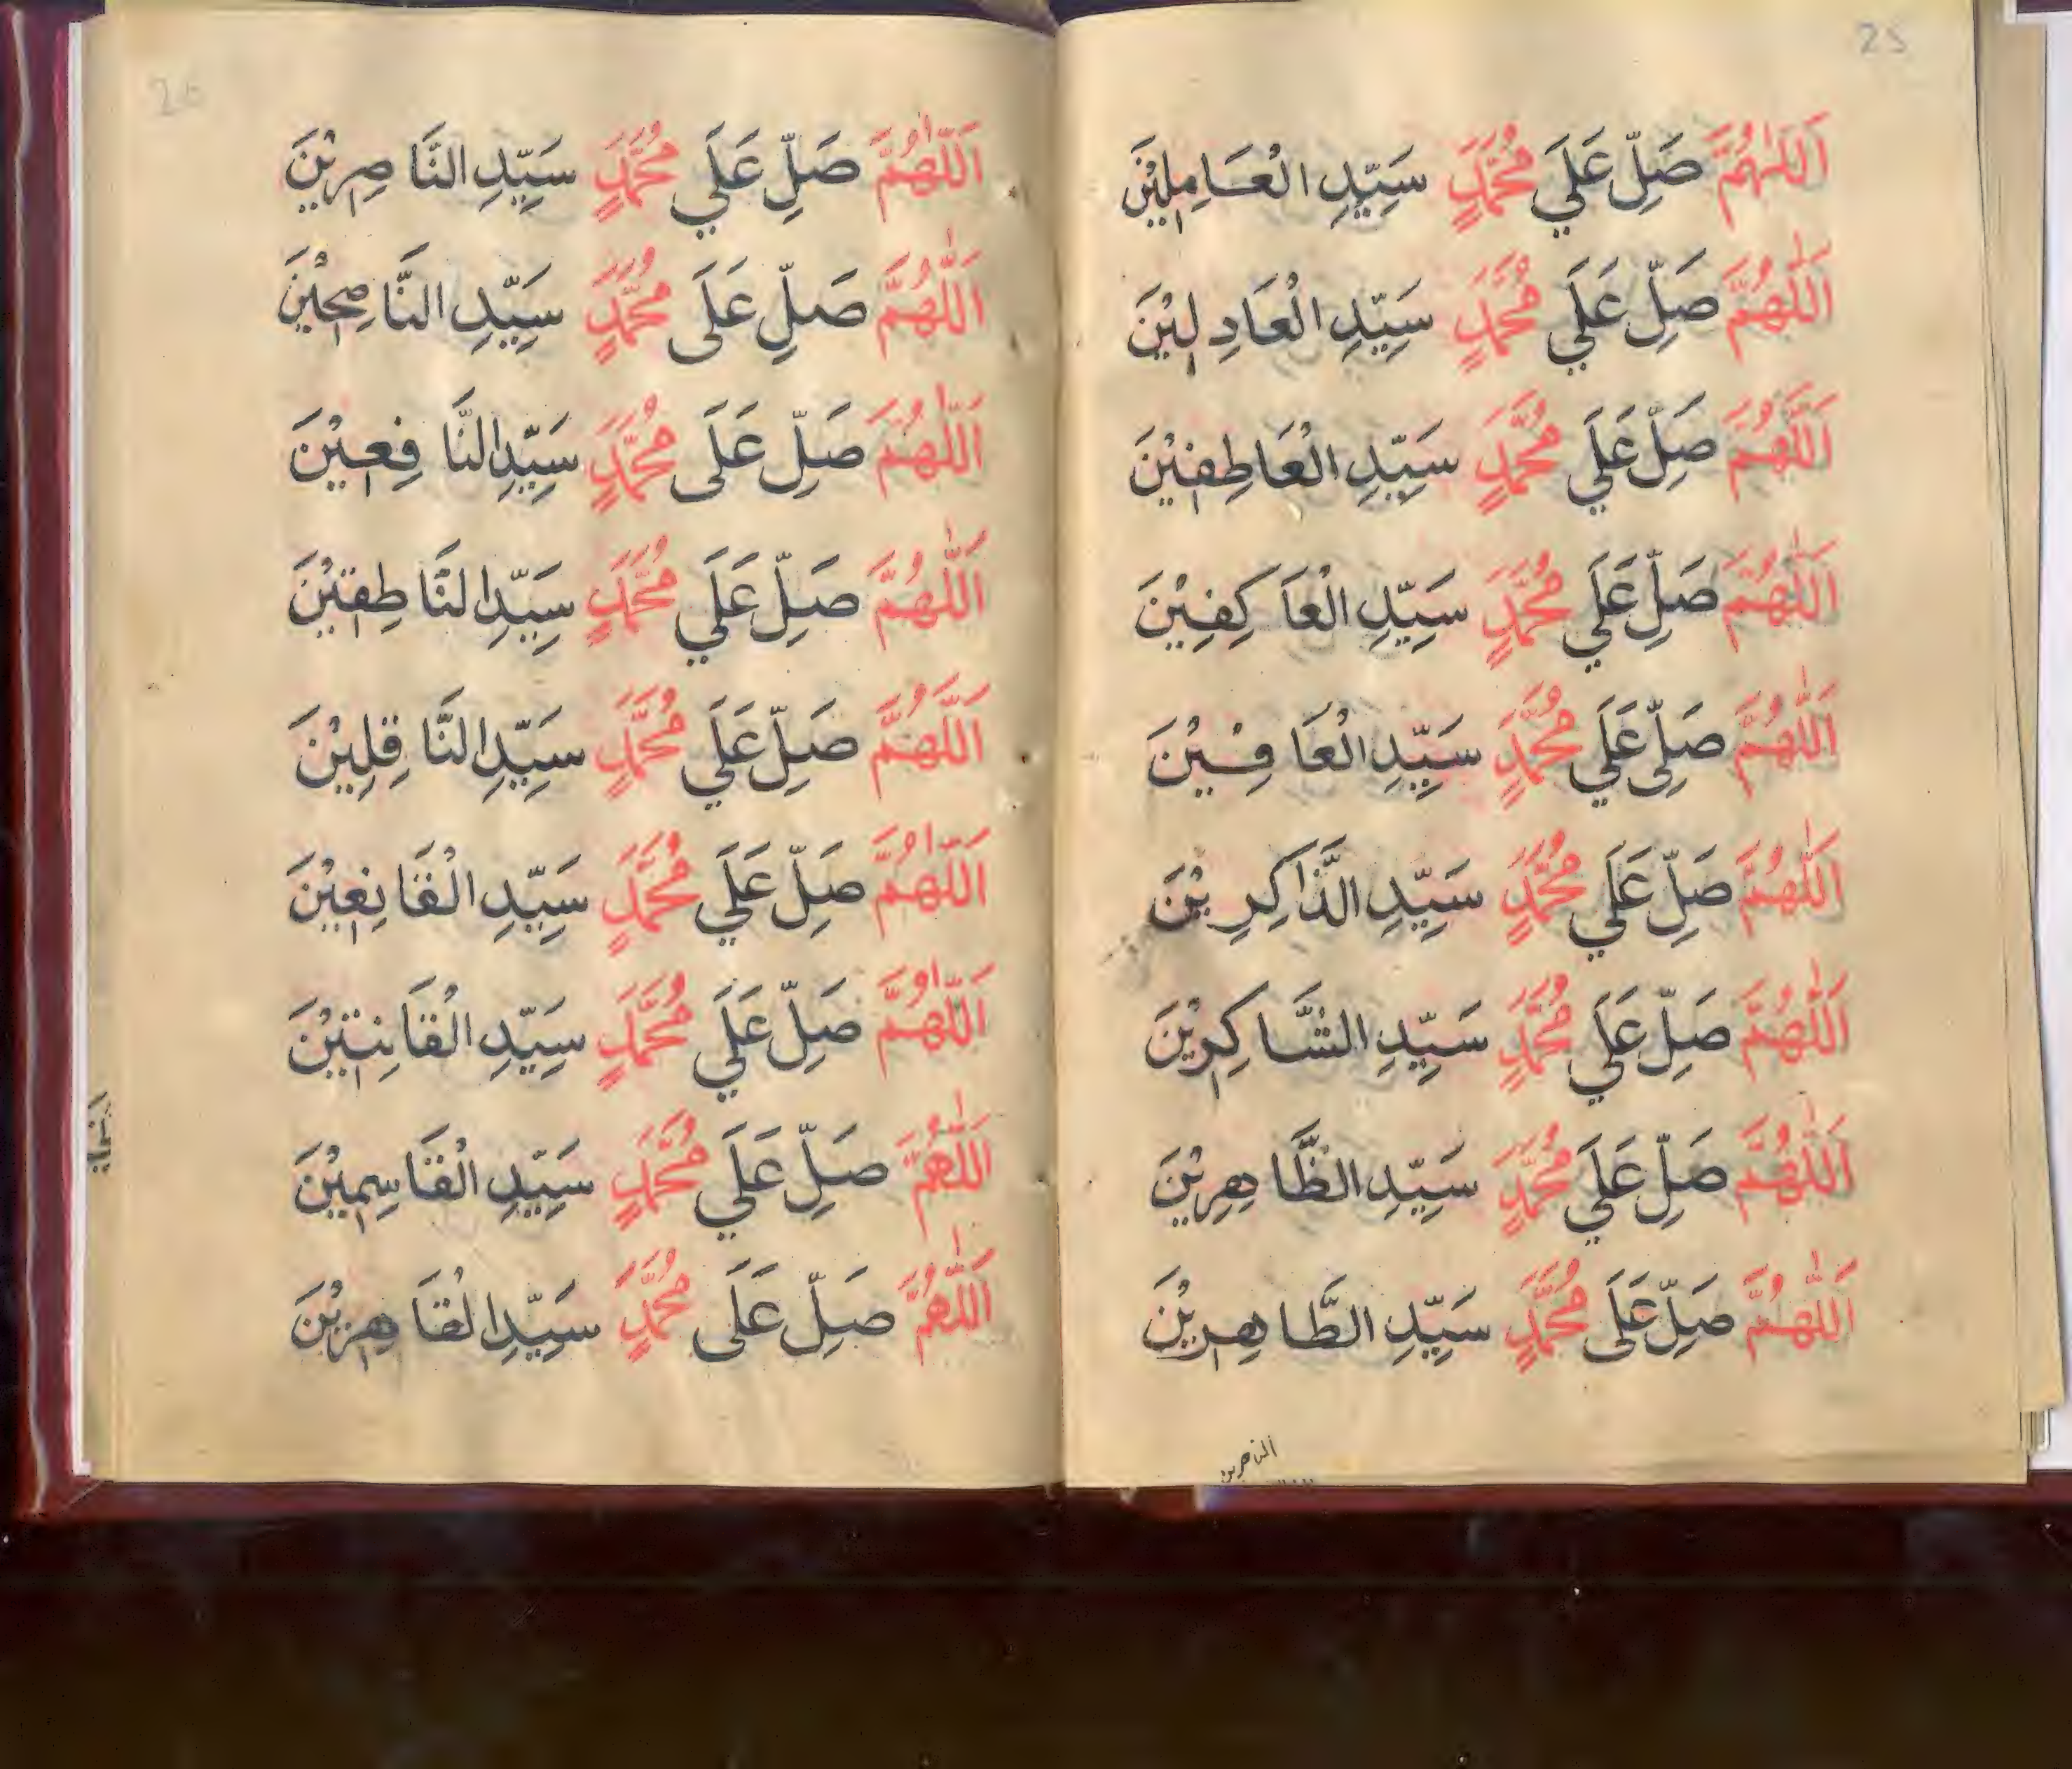 25
اَللّٰهُمَّ صَلِّ عَلَي مُحَمَّدٍ سَيِّدِ الْعَامِلِيْنَ
اَللّٰهُمَّ صَلِّ عَلَي مُحَمَّدٍ سَيِّدِ الْعَادِلِيْنَ
اَللّٰهُمَّ صَلِّ عَلَي مُحَمَّدٍ سَيِّدِ الْعَاطِفِيْنَ
اَللّٰهُمَّ صَلِّ عَلَي مُحَمَّدٍ سَيِّدِ الْعَاكِفِيْنَ
اَللّٰهُمَّ صَلِّي عَلَي مُحَمَّدٍ سَيِّدِ الْعَافِيْنَ
اَللّٰهُمَّ صَلِّ عَلَي مُحَمَّدٍ سَيِّدِ الذَّاكِرِيْنَ
اَللّٰهُمَّ صَلِّ عَلَي مُحَمَّدٍ سَيِّدِ الشَّاكِرِيْنَ
اَللّٰهُمَّ صَلِّ عَلَي مُحَمَّدٍ سَيِّدِ الظَّاهِرِيْنَ
اَللّٰهُمَّ صَلِّ عَلَى مُحَمَّدٍ سَيِّدِ الطَّاهِرِيْنَ
الناصرين
26
اَللّٰهُمَّ صَلِّ عَلَي مُحَمَّدٍ سَيِّدِ النَّاصِرِيْنَ
اَللّٰهُمَّ صَلِّ عَلَى مُحَمَّدٍ سَيِّدِ النَّاصِحِيْنَ
اَللّٰهُمَّ صَلِّ عَلَى مُحَمَّدٍ سَيِّدِ النَّافِعِيْنَ
اَللّٰهُمَّ صَلِّ عَلَي مُحَمَّدٍ سَيِّدِ النَّاطِقِيْنَ
اَللّٰهُمَّ صَلِّ عَلَي مُحَمَّدٍ سَيِّدِ النَّاقِلِيْنَ
اَللّٰهُمَّ صَلِّ عَلَي مُحَمَّدٍ سَيِّدِ الْقَانِعِيْنَ
اَللّٰهُمَّ صَلِّ عَلَي مُحَمَّدٍ سَيِّدِ الْقَانِتِيْنَ
اَللّٰهُمَّ صَلِّ عَلَي مُحَمَّدٍ سَيِّدِ الْقَاسِمِيْنَ
اَللّٰهُمَّ صَلِّ عَلَى مُحَمَّدٍ سَيِّدِ الْقَاهِرِيْنَ